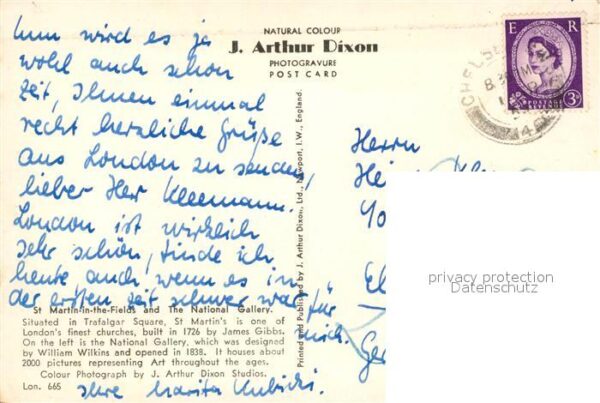 NATURAL COLOUR
J. Arthur Dixon
PHOTOGRAVURE
POST CARD
E R
POSTAGE
REVENUE
3D
CHELSEA
Nun wird es ja
wohl auch schon
Zeit, Ihnen einmal
recht herzliche Grüße
aus London zu senden,
lieber Herr Kleemann.
London ist wirklich
sehr schön, finde ich
heute auch, wenn es in
der ersten Zeit schwer war für
mich.
Ihre Marita Kubicki.
Herrn
St Martin-in-the-Fields and The National Gallery.
Situated in Trafalgar Square, St Martin's is one of
London's finest churches, built in 1726 by James Gibbs.
On the left is the National Gallery, which was designed
by William Wilkins and opened in 1838. It houses about
2000 pictures representing Art throughout the ages.
Colour Photograph by J. Arthur Dixon Studios.
Lon. 665
Printed and Published by J. Arthur Dixon, Ltd., Newport, I.W., England.
privacy protection
Datenschutz